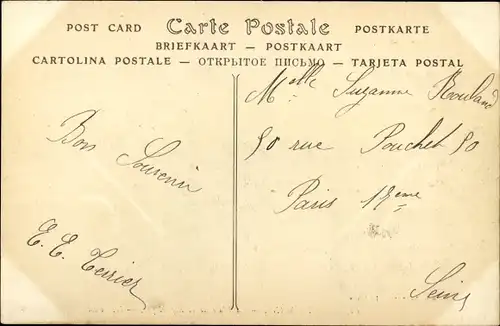 POST CARD Carte Postale POSTKARTE
BRIEFKAART — POSTKAART
CARTOLINA POSTALE — ОТКРЫТОЕ ПИСЬМО — TARJETA POSTAL
Bon Souvenir
Melle Suzanne Rouland
50 rue Pouchet 50
Paris 17eme
Seine